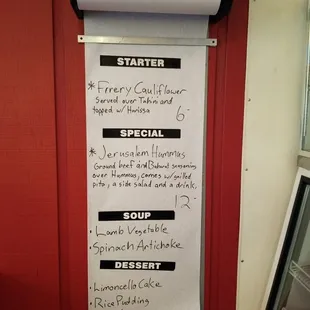 STARTER
* Frery Cauliflower
Served over Tahini and
topped w/ Harissa
6-
SPECIAL
* Jerusalem Hummas
Ground beef and Baharat seasoning
over Hummas, comes w/ grilled
pita, a side salad and a drink.
12-
SOUP
• Lamb Vegetable
• Spinach Artichoke
DESSERT
• Limoncello Cake
• Rice Pudding